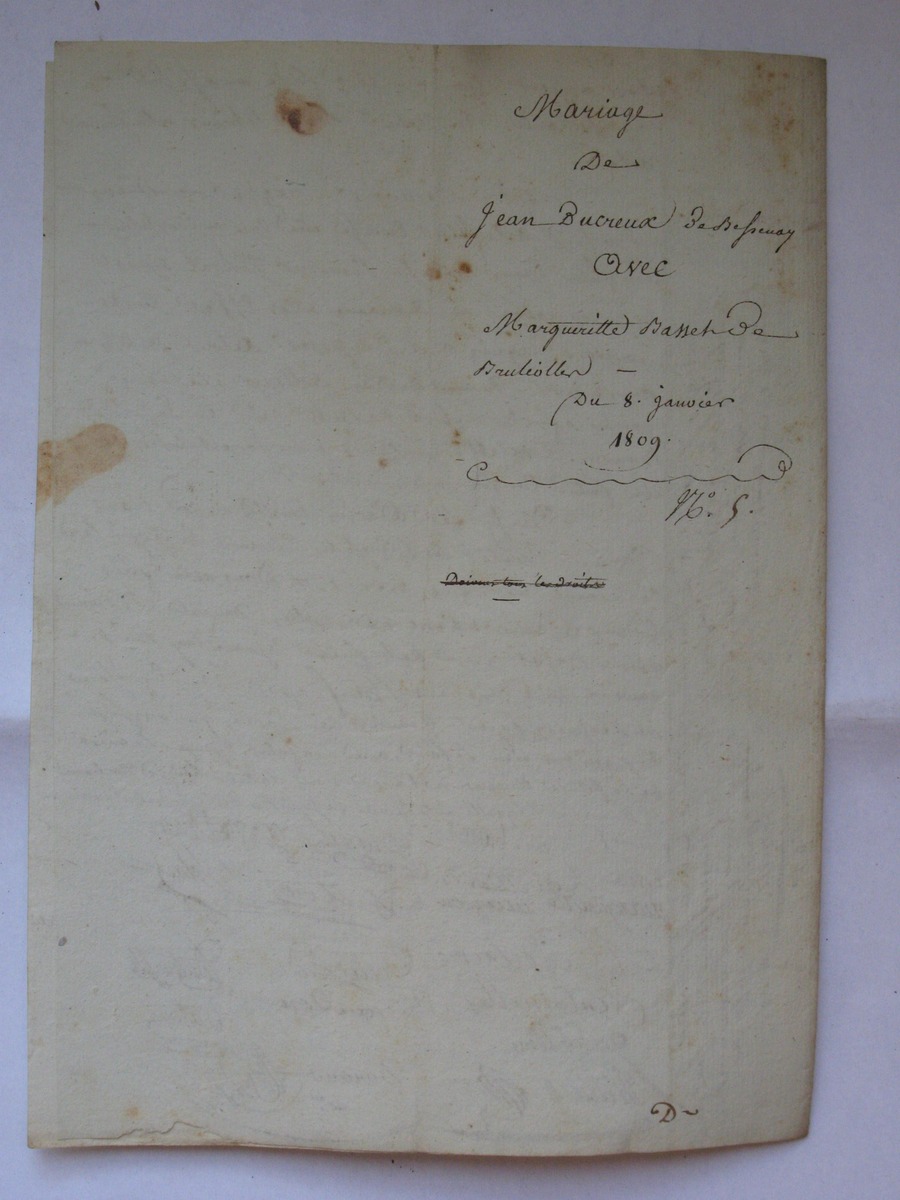 Mariage
De
Jean Ducreux de Bessenay
Avec
Margueritte Basset de
Brulioller —
Du 8. janvier
1809.
N.° 5.
Doivent tous les droits
D